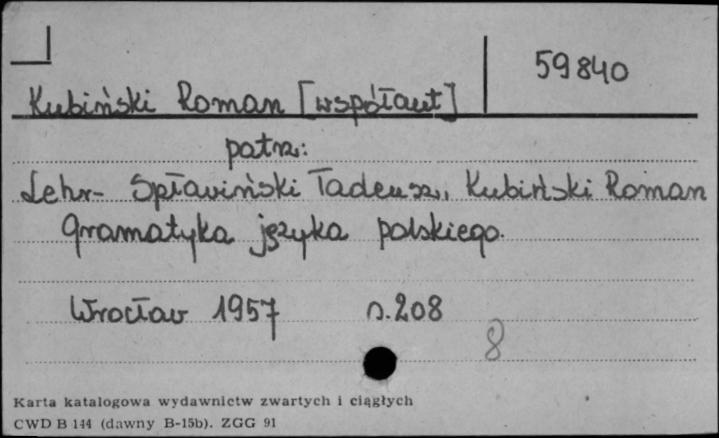 59840
Kubiński Roman [współaut]
patrz:
Lehr- Spławiński Tadeusz, Kubiński Roman
Gramatyka języka polskiego.
Wrocław 1957 s.208
8
Karta katalogowa wydawnictw zwartych i ciągłych
CWD B 144 (dawny B-15b). ZGG 91